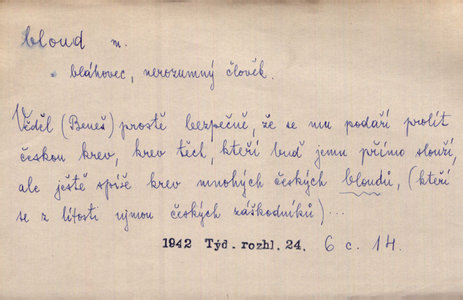 bloud m.
bláhovec, nerozumný člověk.
Věděl (Beneš) prostě bezpečně, že se mu podaří prolít
českou krev, krev těch, kteří buď jemu přímo slouží,
ale ještě spíše krev mnohých českých bloudů, (kteří
se z lítosti ujmou českých záškodníků)...
1942 Týd. rozhl. 24. 6 c. 14.